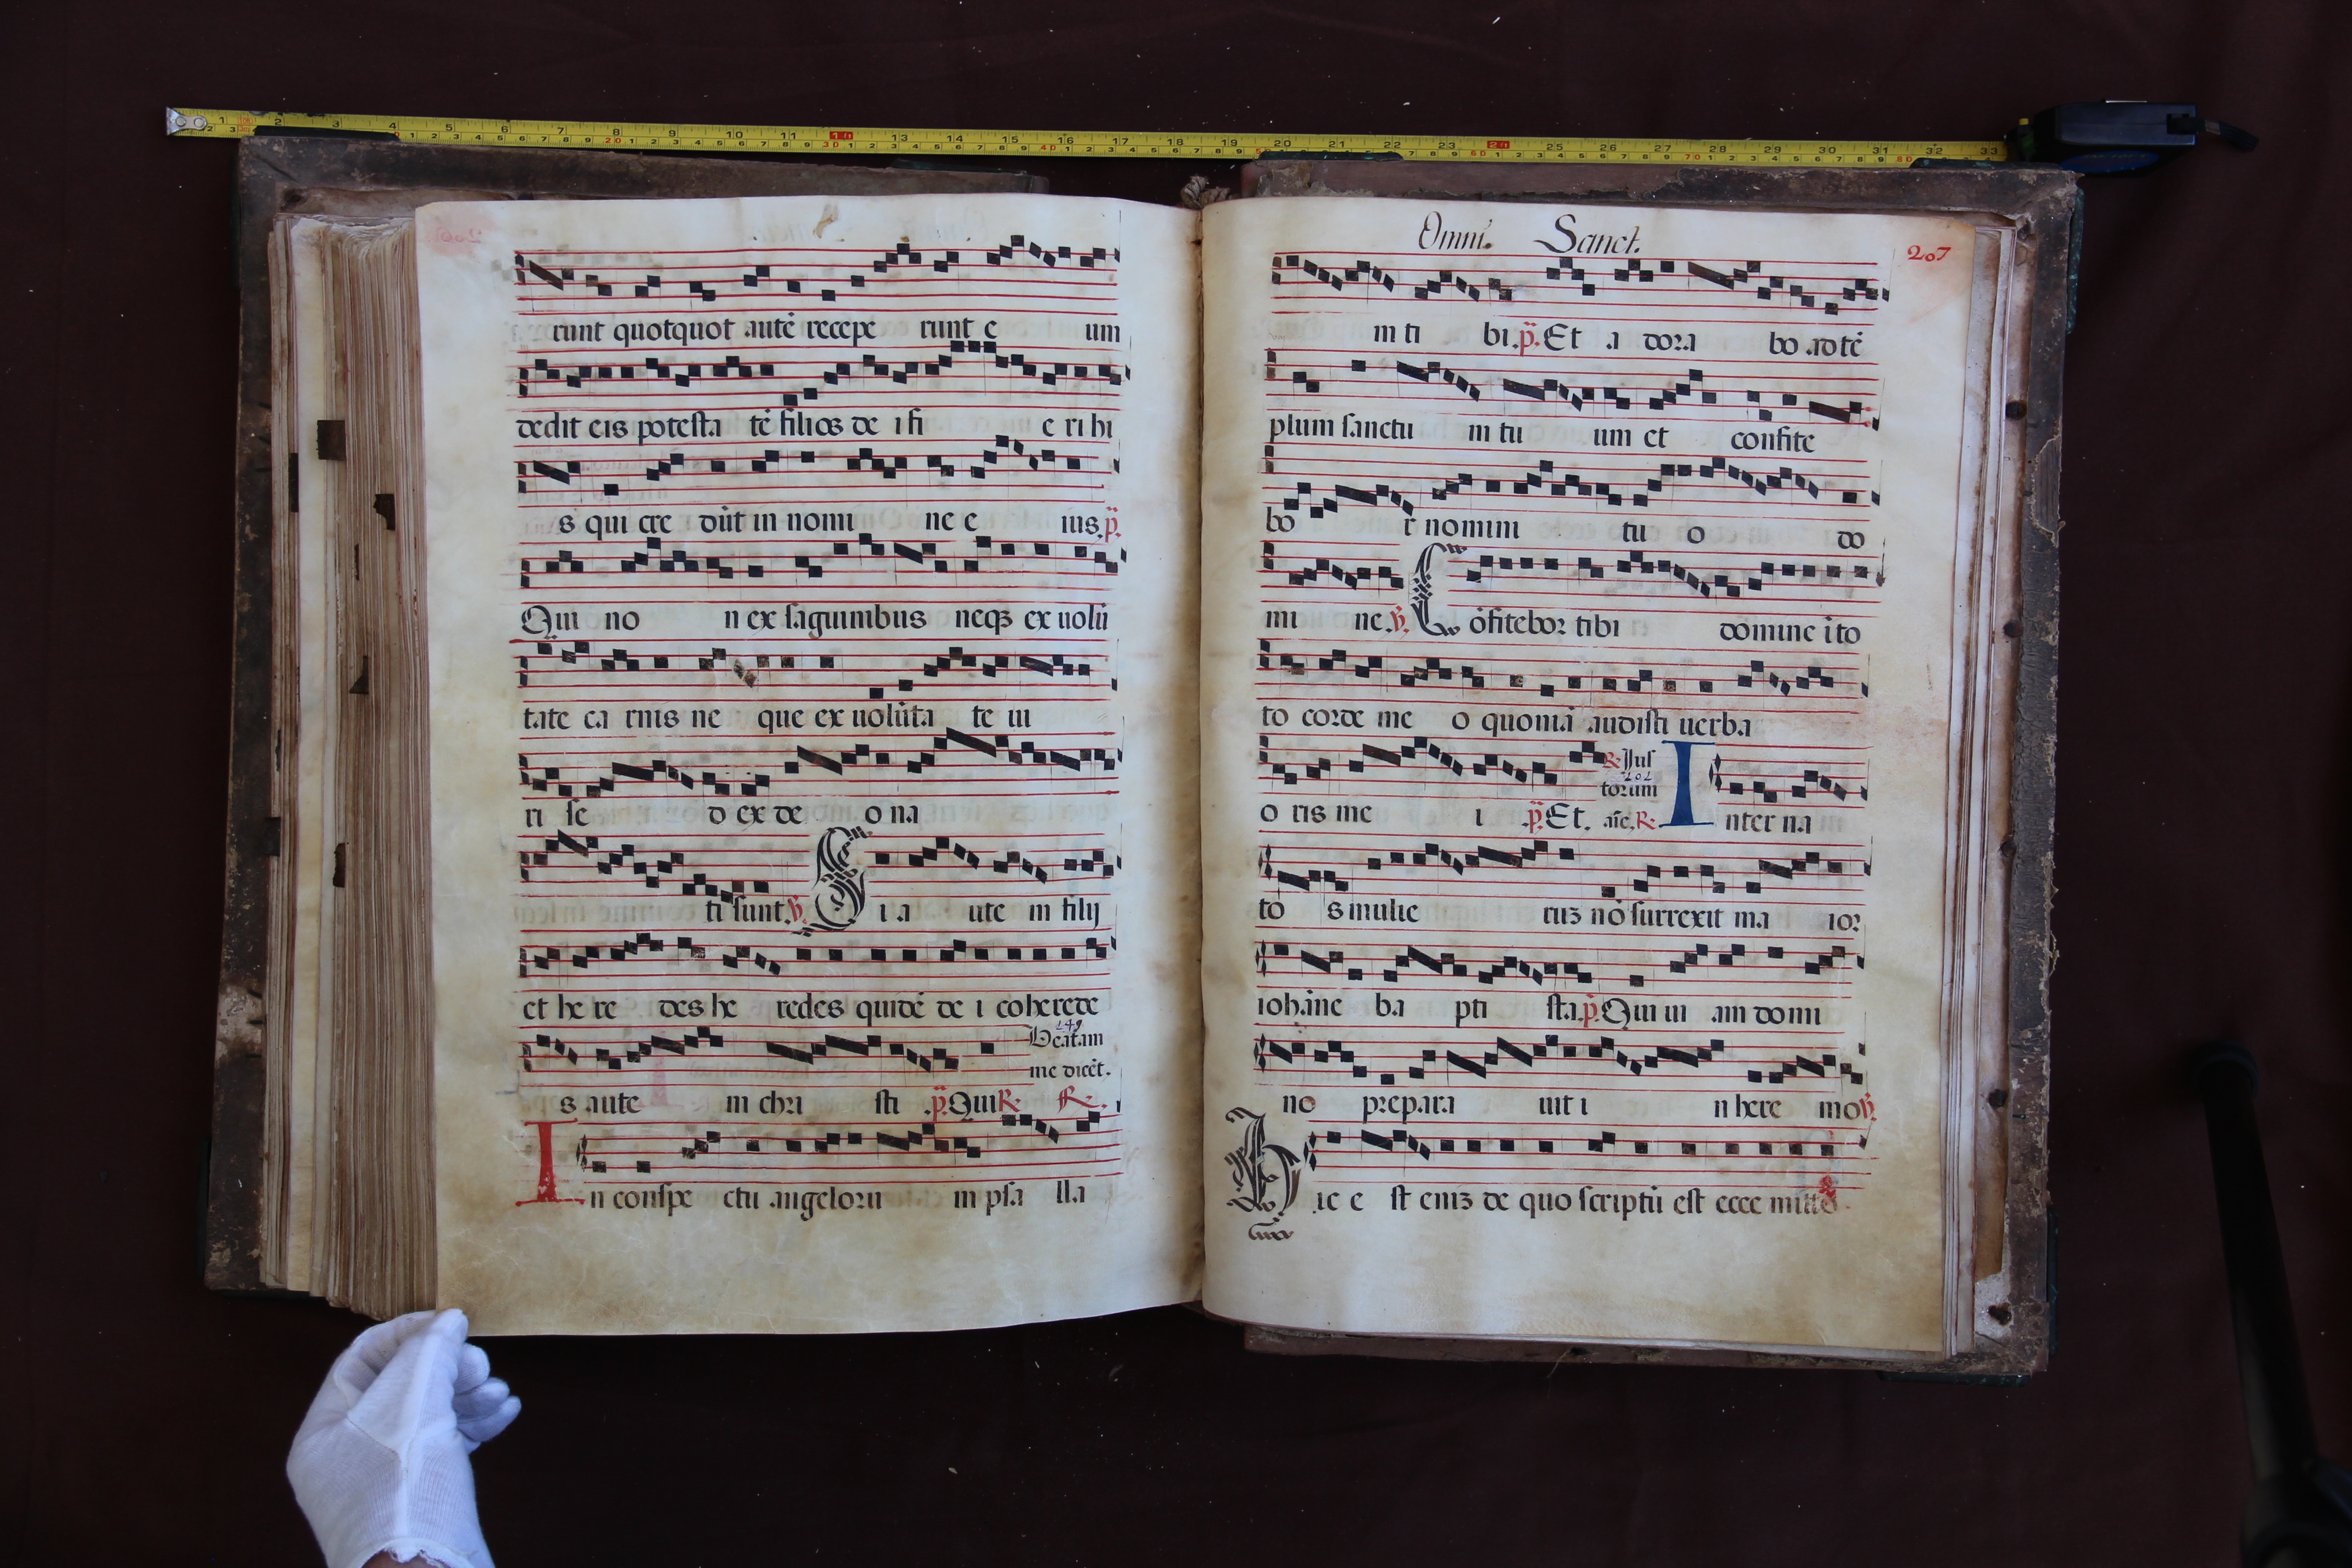 runt quotquot autē recepe runt e um
dedit eis potesta tē filios de i fi e ri hi
s qui cre dūt in nomi ne e ius. p̄.
Qui no n ex sāguinibus neqꝫ ex uolū
tate ca rnis ne que ex uolūta te ui
ri se d ex de o na
ti sunt. ℣. Si a ute m filij
et he re des he redes quidē de i coherede
s aute m chri sti .p̄. Qui ℟.
Beatam
me dicēt.
In conspe ctu angelorū m psa lla
Omni. Sanct.
207
m ti bi. p̄. Et a dora bo ad tē
plum sanctu m tu um et confite
bo r nomini tu o do
mi ne. ℣. Cōfitebor tibi domine ī to
to corde me o quoniā audisti uerba
o ris me i .p̄. Et. añe. ℟.
℟ Jus
torum
Inter na
to s mulie rūꝫ nō surrexit ma ior
iohāne ba pti sta. p̄. Qui ui am domi
no prepara uit i n here mo ℣.
Hic e st enīꝫ de quo scriptū est ecce mitto